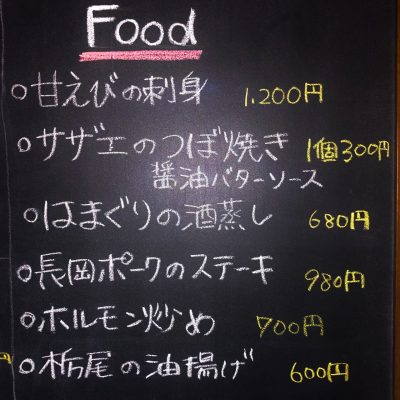 Food
○甘えびの刺身 1.200円
○サザエのつぼ焼き 1個300円
醤油バターソース
○はまぐりの酒蒸し 680円
○長岡ポークのステーキ 980円
○ホルモン炒め 700円
○栃尾の油揚げ 600円